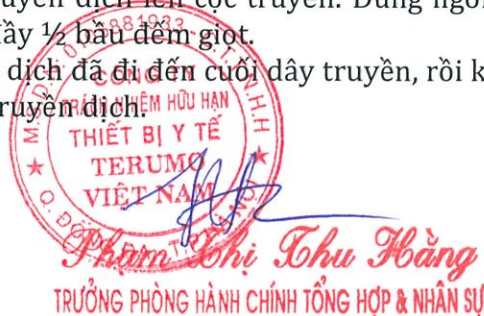 truyền dịch lên cọc truyền. Dùng ngón
đầy ½ bầu đếm giọt.
dịch đã đi đến cuối dây truyền, rồi k
truyền dịch.
CÔNG TY
TRÁCH NHIỆM HỮU HẠN
THIẾT BỊ Y TẾ
TERUMO
VIỆT NAM
Phạm Thị Thu Hằng
TRƯỞNG PHÒNG HÀNH CHÍNH TỔNG HỢP & NHÂN SỰ